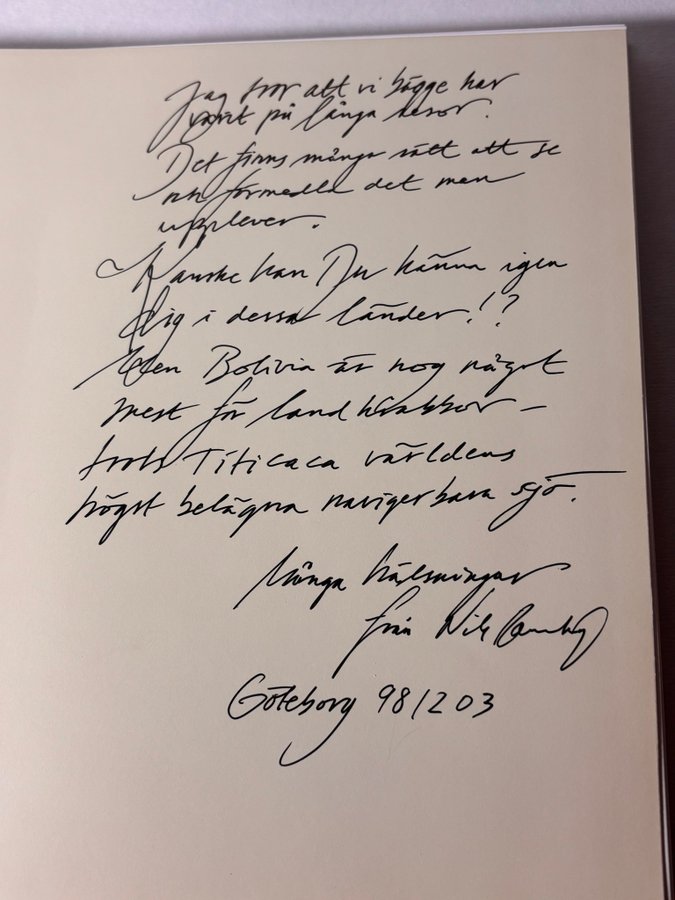 Jag tror att vi bägge har
varit på långa resor.
Det finns många sätt att se
och förmedla det man
upplever.
Kanske kan Du känna igen
dig i dessa länder!?
Men Bolivia är nog något
mest för landkrabbor –
trots Titicaca världens
högst belägna navigerbara sjö.
Många hälsningar
från
Göteborg 98 12 03